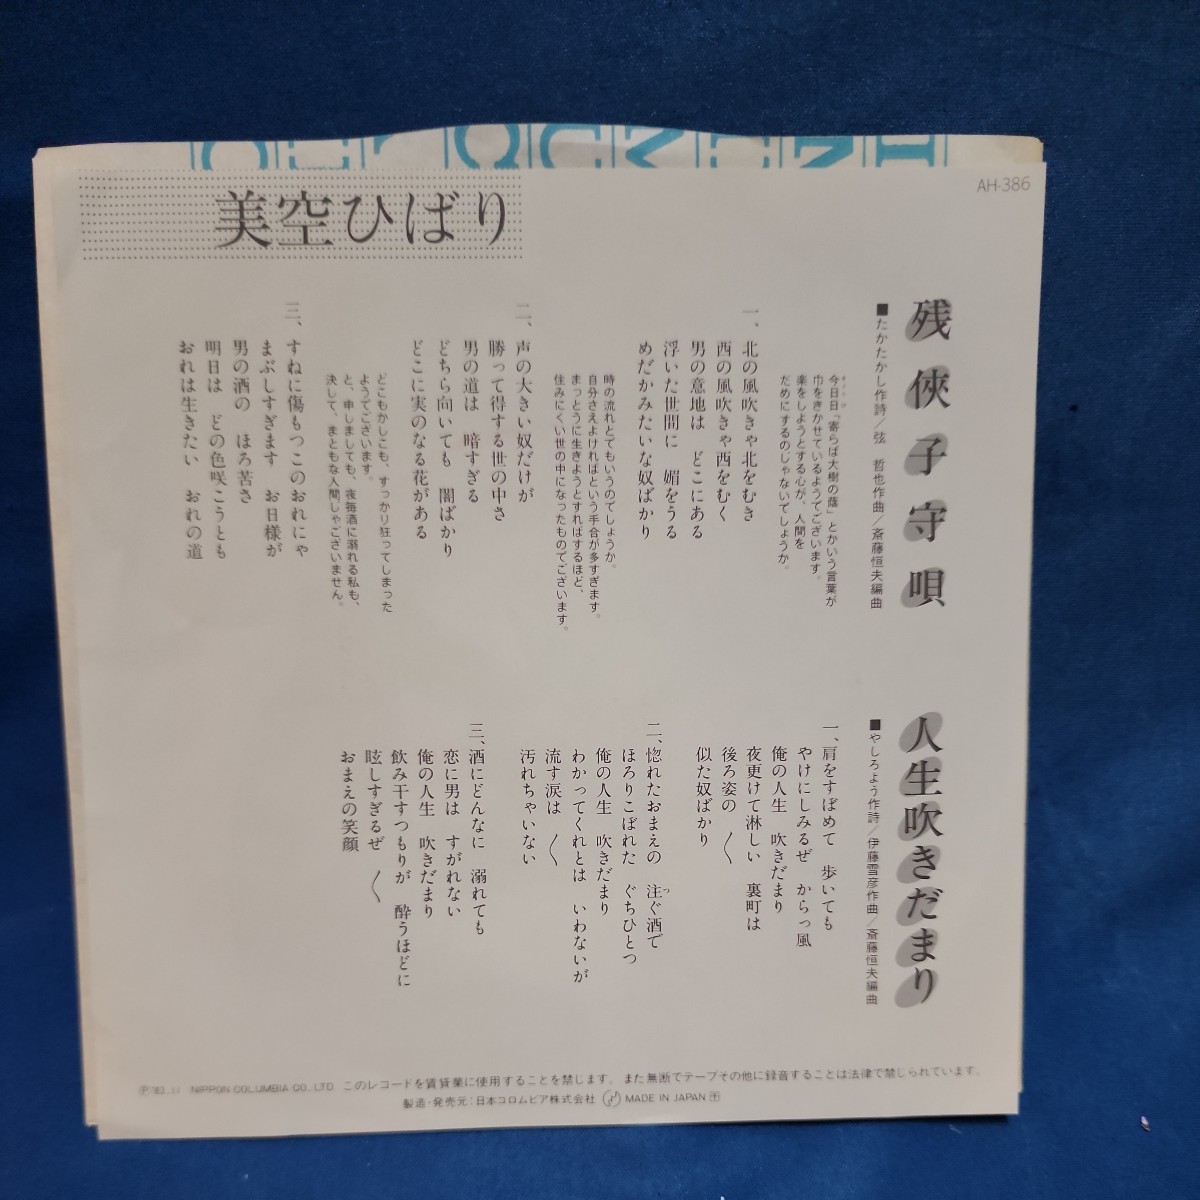 AH-386
美空ひばり
残俠子守唄
■たかたかし作詩／弦　哲也作曲／斎藤恒夫編曲
今日日「寄らば大樹の蔭」とかいう言葉が
巾をきかせているようでございます。
楽をしようとする心が、人間を
だめにするのじゃないでしょうか。
一、北の風吹きゃ北をむき
西の風吹きゃ西をむく
男の意地は　どこにある
浮いた世間に　媚をうる
めだかみたいな奴ばかり
時の流れとでもいうのでしょうか。
自分さえよければという手合が多すぎます。
まっとうに生きようとすればするほど、
住みにくい世の中になったものでございます。
二、声の大きい奴だけが
勝って得する世の中さ
男の道は　暗すぎる
どちら向いても　闇ばかり
どこに実のなる花がある
どこもかしこも、すっかり狂ってしまった
ようでございます。
と、申しましても、夜毎酒に溺れる私も、
決して、まともな人間じゃございません。
三、すねに傷もつこのおれにゃ
まぶしすぎます　お日様が
男の酒の　ほろ苦さ
明日は　どの色咲こうとも
おれは生きたい　おれの道
人生吹きだまり
■やしろよう作詩／伊藤雪彦作曲／斎藤恒夫編曲
一、肩をすぼめて　歩いても
やけにしみるぜ　からっ風
俺の人生　吹きだまり
夜更けて淋しい　裏町は
後ろ姿の　〱
似た奴ばかり
二、惚れたおまえの　注ぐ酒で
ほろりこぼれた　ぐちひとつ
俺の人生　吹きだまり
わかってくれとは　いわないが
流す涙は　〱
汚れちゃいない
三、酒にどんなに　溺れても
恋に男は　すがれない
俺の人生　吹きだまり
飲み干すつもりが　酔うほどに
眩しすぎるぜ　〱
おまえの笑顔
Ⓟ'83.11 NIPPON COLUMBIA CO., LTD. このレコードを賃貸業に使用することを禁じます。また無断でテープその他に録音することは法律で禁じられています。
製造・発売元：日本コロムビア株式会社 MADE IN JAPAN